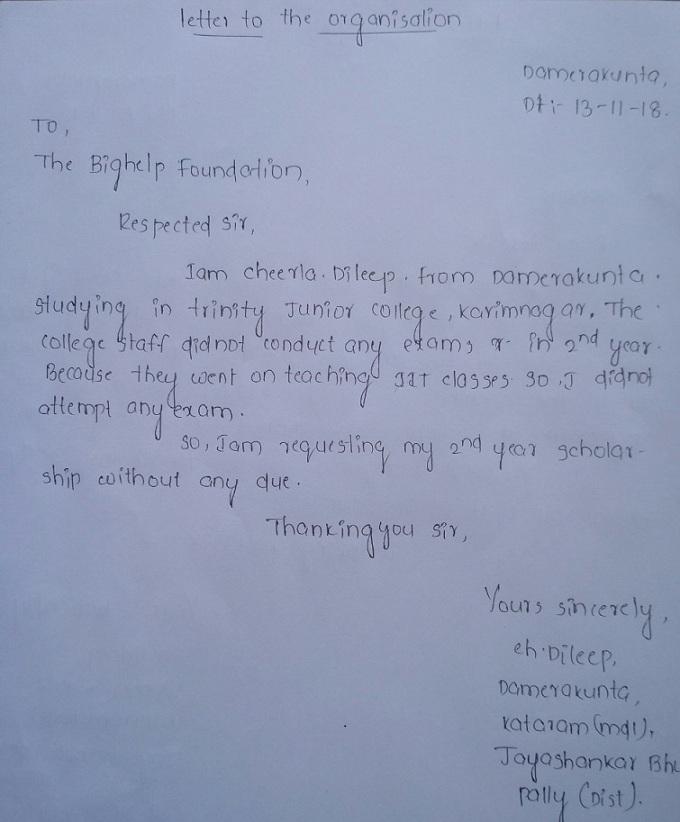 letter to the organisation
Damerakunta,
Dt:- 13-11-18.
TO,
The Bighelp Foundation,
Respected Sir,
Iam cheerla. Dileep. from Damerakunta.
studying in trinity Junior college, karimnagar. The
college staff didnot conduct any exams in 2nd year.
Because they went on teaching IIT classes so, I didnot
attempt any exam.
so, Iam requesting my 2nd year scholar-
ship without any due.
Thankingyou sir,
Yours sincerely,
ch. Dileep,
Damerakunta,
kataram(mdl),
Jayashankar Bhu
pally (Dist).